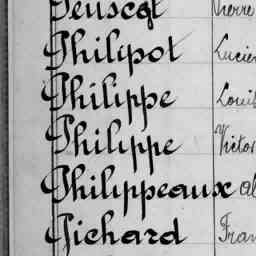 Peuscet Pierre
Philipot Lucien
Philippe Louis
Philippe Victor
Philippeaux Al
Pichard Fran